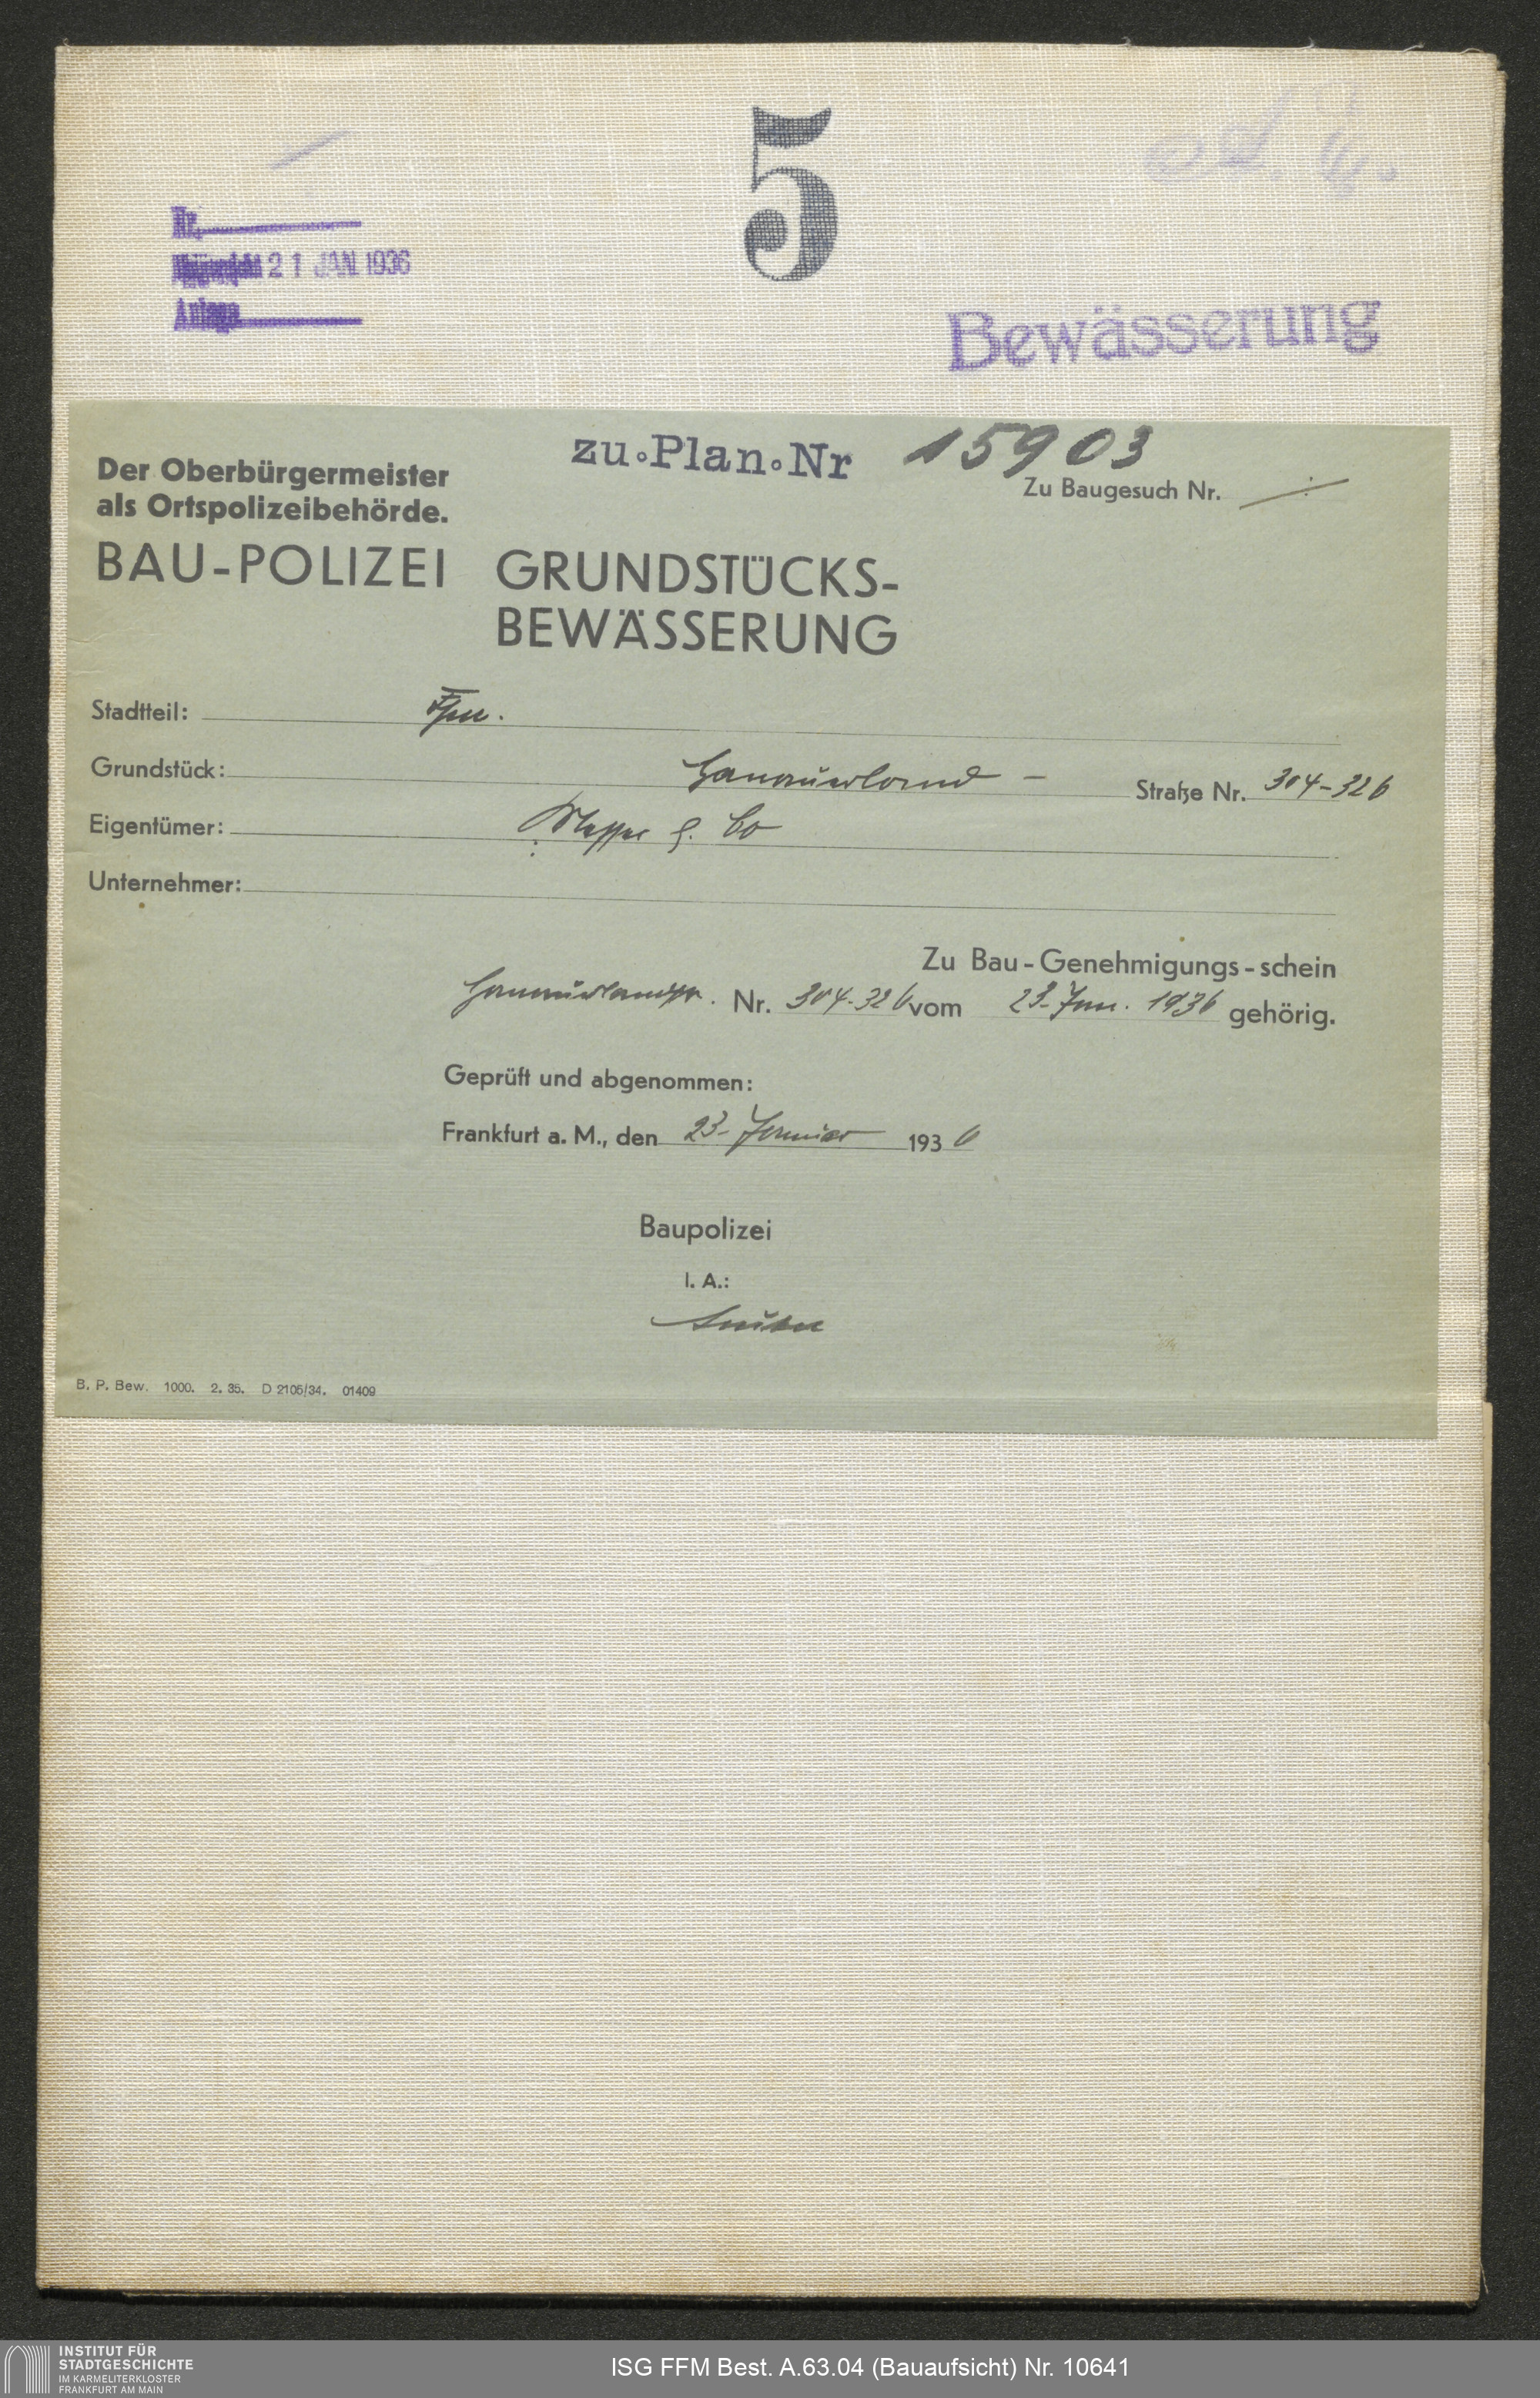 5
Nr.
21 JAN 1936
Anlage
Bewässerung
zu Plan Nr 15903
Der Oberbürgermeister
als Ortspolizeibehörde.
Zu Baugesuch Nr.
BAU-POLIZEI
GRUNDSTÜCKS-
BEWÄSSERUNG
Stadtteil:
Grundstück: Hanauerland - Straße Nr. 304-326
Eigentümer: Messer & Co
Unternehmer:
Zu Bau-Genehmigungs-schein
Hanauerlandstr. Nr. 304-326 vom 23. Jan. 1936 gehörig.
Geprüft und abgenommen:
Frankfurt a. M., den 23. Januar 1936
Baupolizei
I. A.:
B. P. Bew. 1000. 2. 35. D 2105/34. 01409
INSTITUT FÜR
STADTGESCHICHTE
IM KARMELITERKLOSTER
FRANKFURT AM MAIN
ISG FFM Best. A.63.04 (Bauaufsicht) Nr. 10641